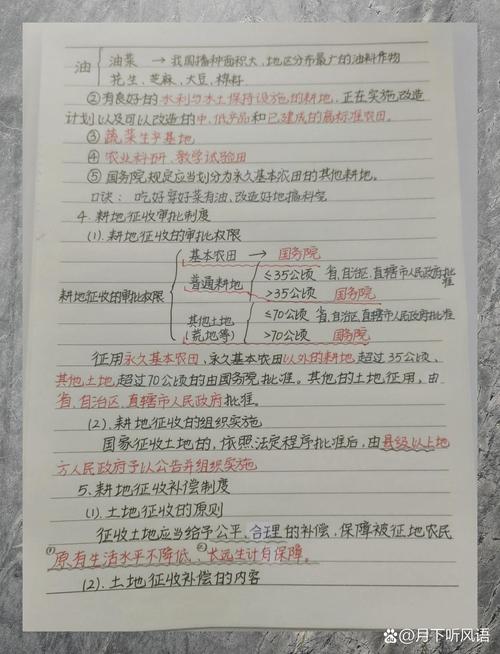 油
油菜 → 我国播种面积大、地区分布最广的油料作物
花生、芝麻、大豆、棉籽
②有良好的水利与水土保持设施的耕地,正在实施改造
计划以及可以改造的中、低产田和已建成的高标准农田。
③蔬菜生产基地
④农业科研、教学试验田
⑤国务院规定应当划分为永久基本农田的其他耕地。
口诀:吃好穿好菜有油、改造好地搞科究
4.耕地征收审批制度
(1).耕地征收的审批权限
耕地征收的审批权限
基本农田 → 国务院
普通耕地
≤35公顷 省、自治区、直辖市人民政府批准
>35公顷 国务院
其他土地
(荒地等)
≤70公顷 省、自治区、直辖市人民政府批准
>70公顷 国务院
征用永久基本农田,永久基本农田以外的耕地超过35公顷,
其他土地超过70公顷的由国务院批准。其他的土地征用,由
省、自治区、直辖市人民政府批准。
(2).耕地征收的组织实施
国家征收土地的,依照法定程序批准后,由县级以上地
方人民政府予以公告并组织实施
5.耕地征收补偿制度
(1).土地征收的原则
征收土地应当给予公平、合理的补偿,保障被征地农民
①原有生活水平不降低、②长远生计有保障。
(2).土地征收补偿的内容
@月下听风语